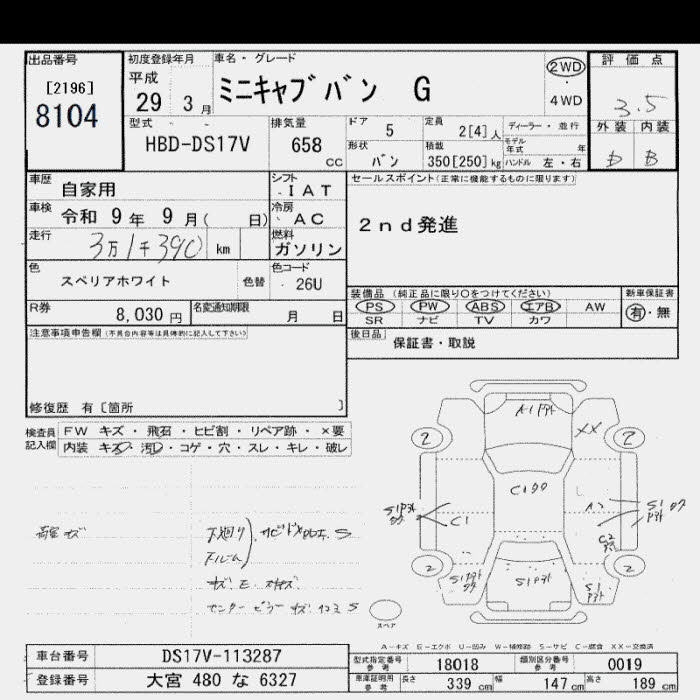 出品番号
[2196]
8104
初度登録年月
平成
29 3月
車名・グレード
ミニキャブバン G
2WD
4WD
評価点
3.5
外装 内装
D B
型式
HBD-DS17V
排気量
658 cc
ドア 5
定員 2[4]人
ディーラー・並行
モデル年式 年
形状 バン
積載 350[250]kg
ハンドル 左・右
車歴 自家用
シフト IAT
セールスポイント(正常に機能するものに限ります)
2nd発進
車検 令和 9年 9月( 日)
冷房 AC
走行 3万1千390 km
燃料 ガソリン
色 スペリアホワイト 色替
色コード 26U
装備品 (純正品に限り○をつけてください)
PS PW ABS エアB AW
SR ナビ TV カワ
新車保証書
有・無
R券 8,030円
名変通知期限 月 日
後日品 保証書・取説
注意事項申告欄(不具合内容等は具体的に記入して下さい)
修復歴 有〔箇所 〕
検査員記入欄
FW キズ・飛石・ヒビ割・リペア跡・×要
内装 キズ・汚・コゲ・穴・スレ・キレ・破レ
荷室 キズ
下廻り
下ルーム
サビ S
センターピラー キズ S
A1
XX
2 2
C1
C1
S1
A2
S1
C2
2 2
S1
S1
S1
スペア
A-キズ E-エクボ U-凹み W-補修跡 S-サビ C-腐食 XX-交換済
車台番号 DS17V-113287
登録番号 大宮 480 な 6327
型式指定番号 参考 18018
類別区分番号 参考 0019
車庫証明用 参考 長さ 339cm 幅 147cm 高さ 189cm